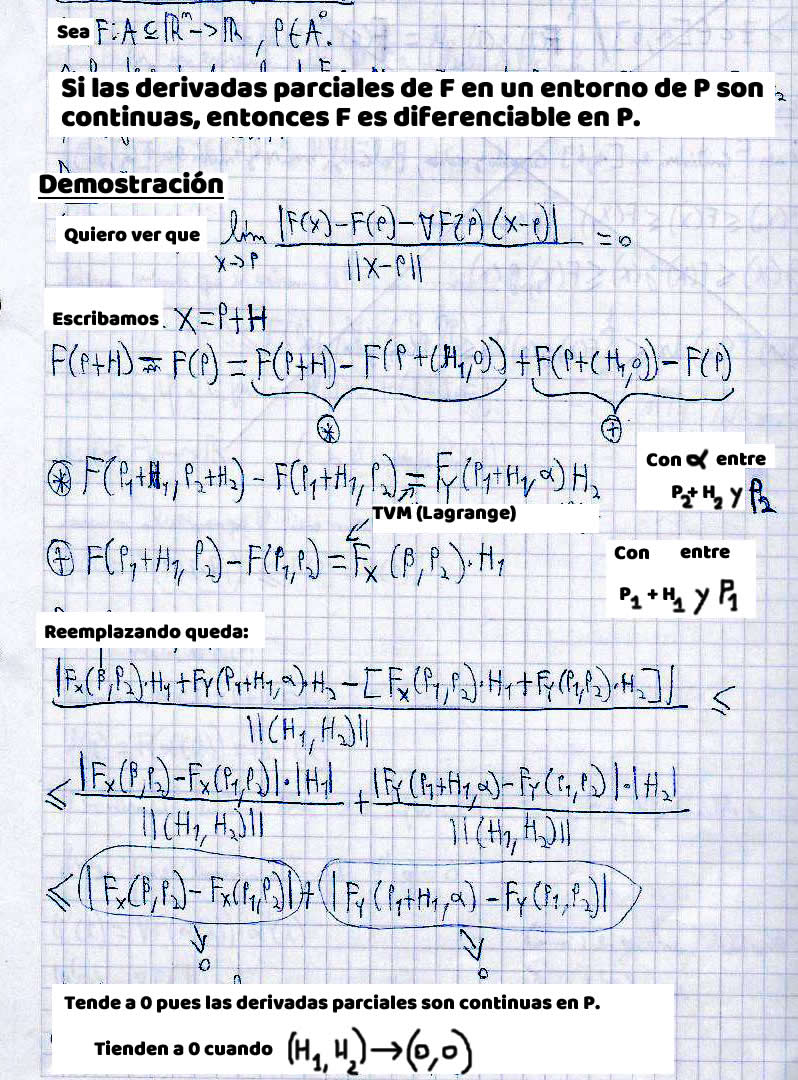 Sea F: A ⊆ ℝᵐ -> ℝ, P ∈ A°.
Si las derivadas parciales de F en un entorno de P son
continuas, entonces F es diferenciable en P.
Demostración
Quiero ver que lim x->P |F(x) - F(P) - ∇F(P)(x-P)| / ||x-P|| = 0
Escribamos X = P + H
F(P+H) - F(P) = F(P+H) - F(P+(H₁,0)) + F(P+(H₁,0)) - F(P)
(*) (+)
(*) F(P₁+H₁, P₂+H₂) - F(P₁+H₁, P₂) = F_Y(P₁+H₁, α) H₂
Con α entre
P₂+H₂ y P₂
TVM (Lagrange)
(+) F(P₁+H₁, P₂) - F(P₁, P₂) = F_X(β, P₂)·H₁
Con entre
P₁+H₁ y P₁
Reemplazando queda:
|F_X(β,P₂)·H₁ + F_Y(P₁+H₁,α)·H₂ - [F_X(P₁,P₂)·H₁ + F_Y(P₁,P₂)·H₂]| / ||(H₁,H₂)|| ≤
≤ |F_X(β,P₂) - F_X(P₁,P₂)|·|H₁| / ||(H₁,H₂)|| + |F_Y(P₁+H₁,α) - F_Y(P₁,P₂)|·|H₂| / ||(H₁,H₂)||
≤ |F_X(β,P₂) - F_X(P₁,P₂)| + |F_Y(P₁+H₁,α) - F_Y(P₁,P₂)|
↓ 0 ↓ 0
Tende a 0 pues las derivadas parciales son continuas en P.
Tienden a 0 cuando (H₁,H₂)→(0,0)